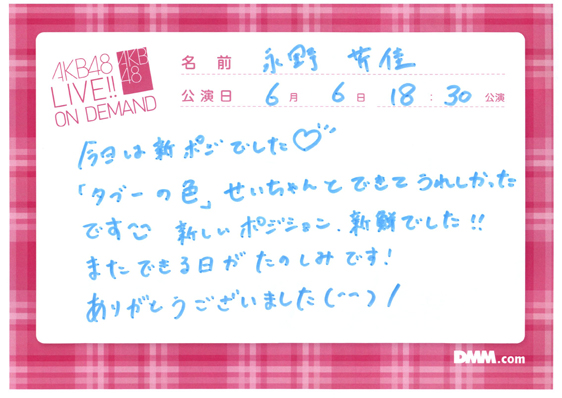 AKB48
LIVE!!
ON DEMAND
AKB
48
名前 永野 芹佳
公演日 6月 6日 18:30 公演
今日は新ポジでした♡
「タブーの色」せいちゃんとできてうれしかった
です 新しいポジション、新鮮でした!!
またできる日がたのしみです!
ありがとうございました(^^)/
DMM.com